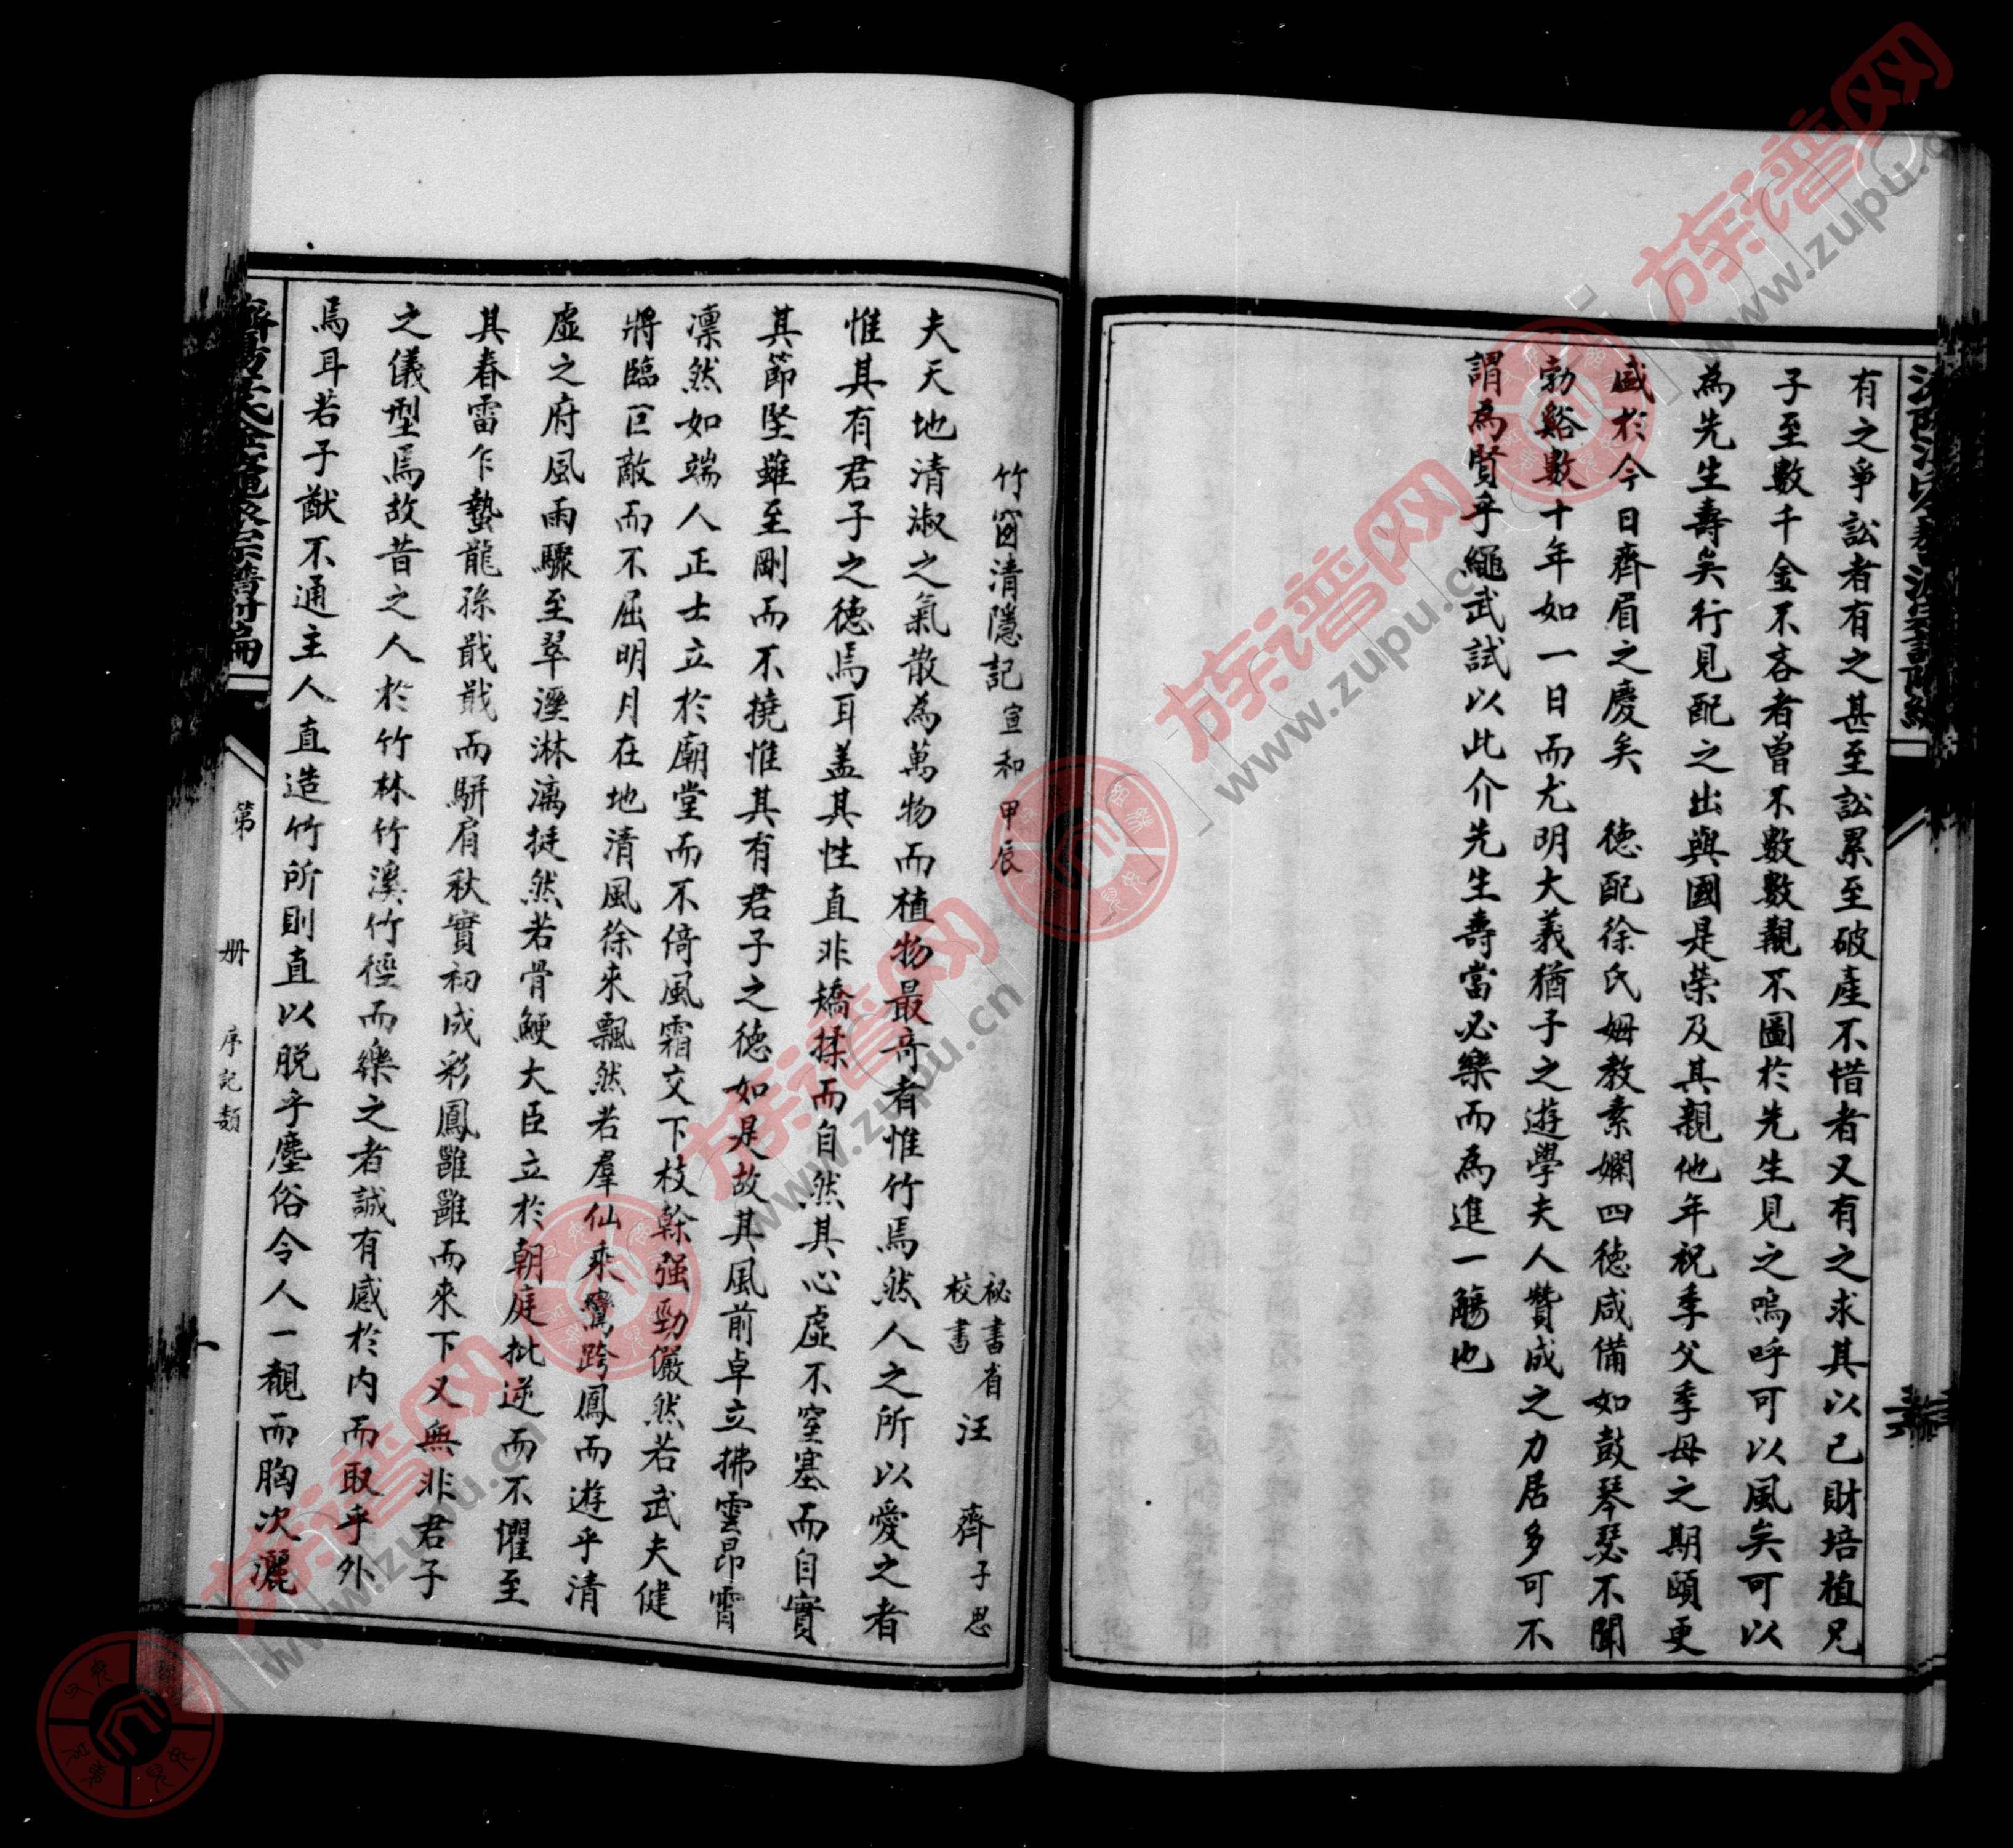 有之爭訟者有之甚至訟累至破產不惜者又有之求其以己財培植兄
子至數千金不吝者曾不數數觀不圖於先生見之嗚呼可以風矣可以
為先生壽矣行見配之出與國是榮及其親他年祝季父季母之期頤更
盛於今日齊眉之慶矣 德配徐氏姆教素嫻四德咸備如鼓琴瑟不聞
勃谿數十年如一日而尤明大義猶子之遊學夫人贊成之力居多可不
謂為賢乎繩武試以此介先生壽當必樂而為進一觴也
竹窗清隱記 宣和甲辰
秘書省校書 汪齊 子思
夫天地清淑之氣散為萬物而植物最奇者惟竹焉然人之所以愛之者
惟其有君子之德焉耳盖其性直非矯揉而自然其心虛不窒塞而自實
其節堅雖至剛而不撓惟其有君子之德如是故其風前卓立拂雲昂霄
凛然如端人正士立於廟堂而不倚風霜交下枝榦强勁儼然若武夫健
將臨巨敵而不屈明月在地清風徐來飄然若羣仙乘鸞跨鳳而遊乎清
虛之府風雨驟至翠溼淋漓挺然若骨鯁大臣立於朝庭批逆而不懼至
其春雷乍蟄龍孫戢戢而駢肩秋實初成彩鳳雝雝而來下又無非君子
之儀型焉故昔之人於竹林竹溪竹徑而樂之者誠有感於內而取乎外
焉耳若子猷不通主人直造竹所則直以脱乎塵俗令人一覩而胸次灑
第 册 序記類 一
族谱网
www.zupu.cn
族谱网
www.zupu.cn
族谱网
www.zupu.cn
族谱网
www.zupu.cn